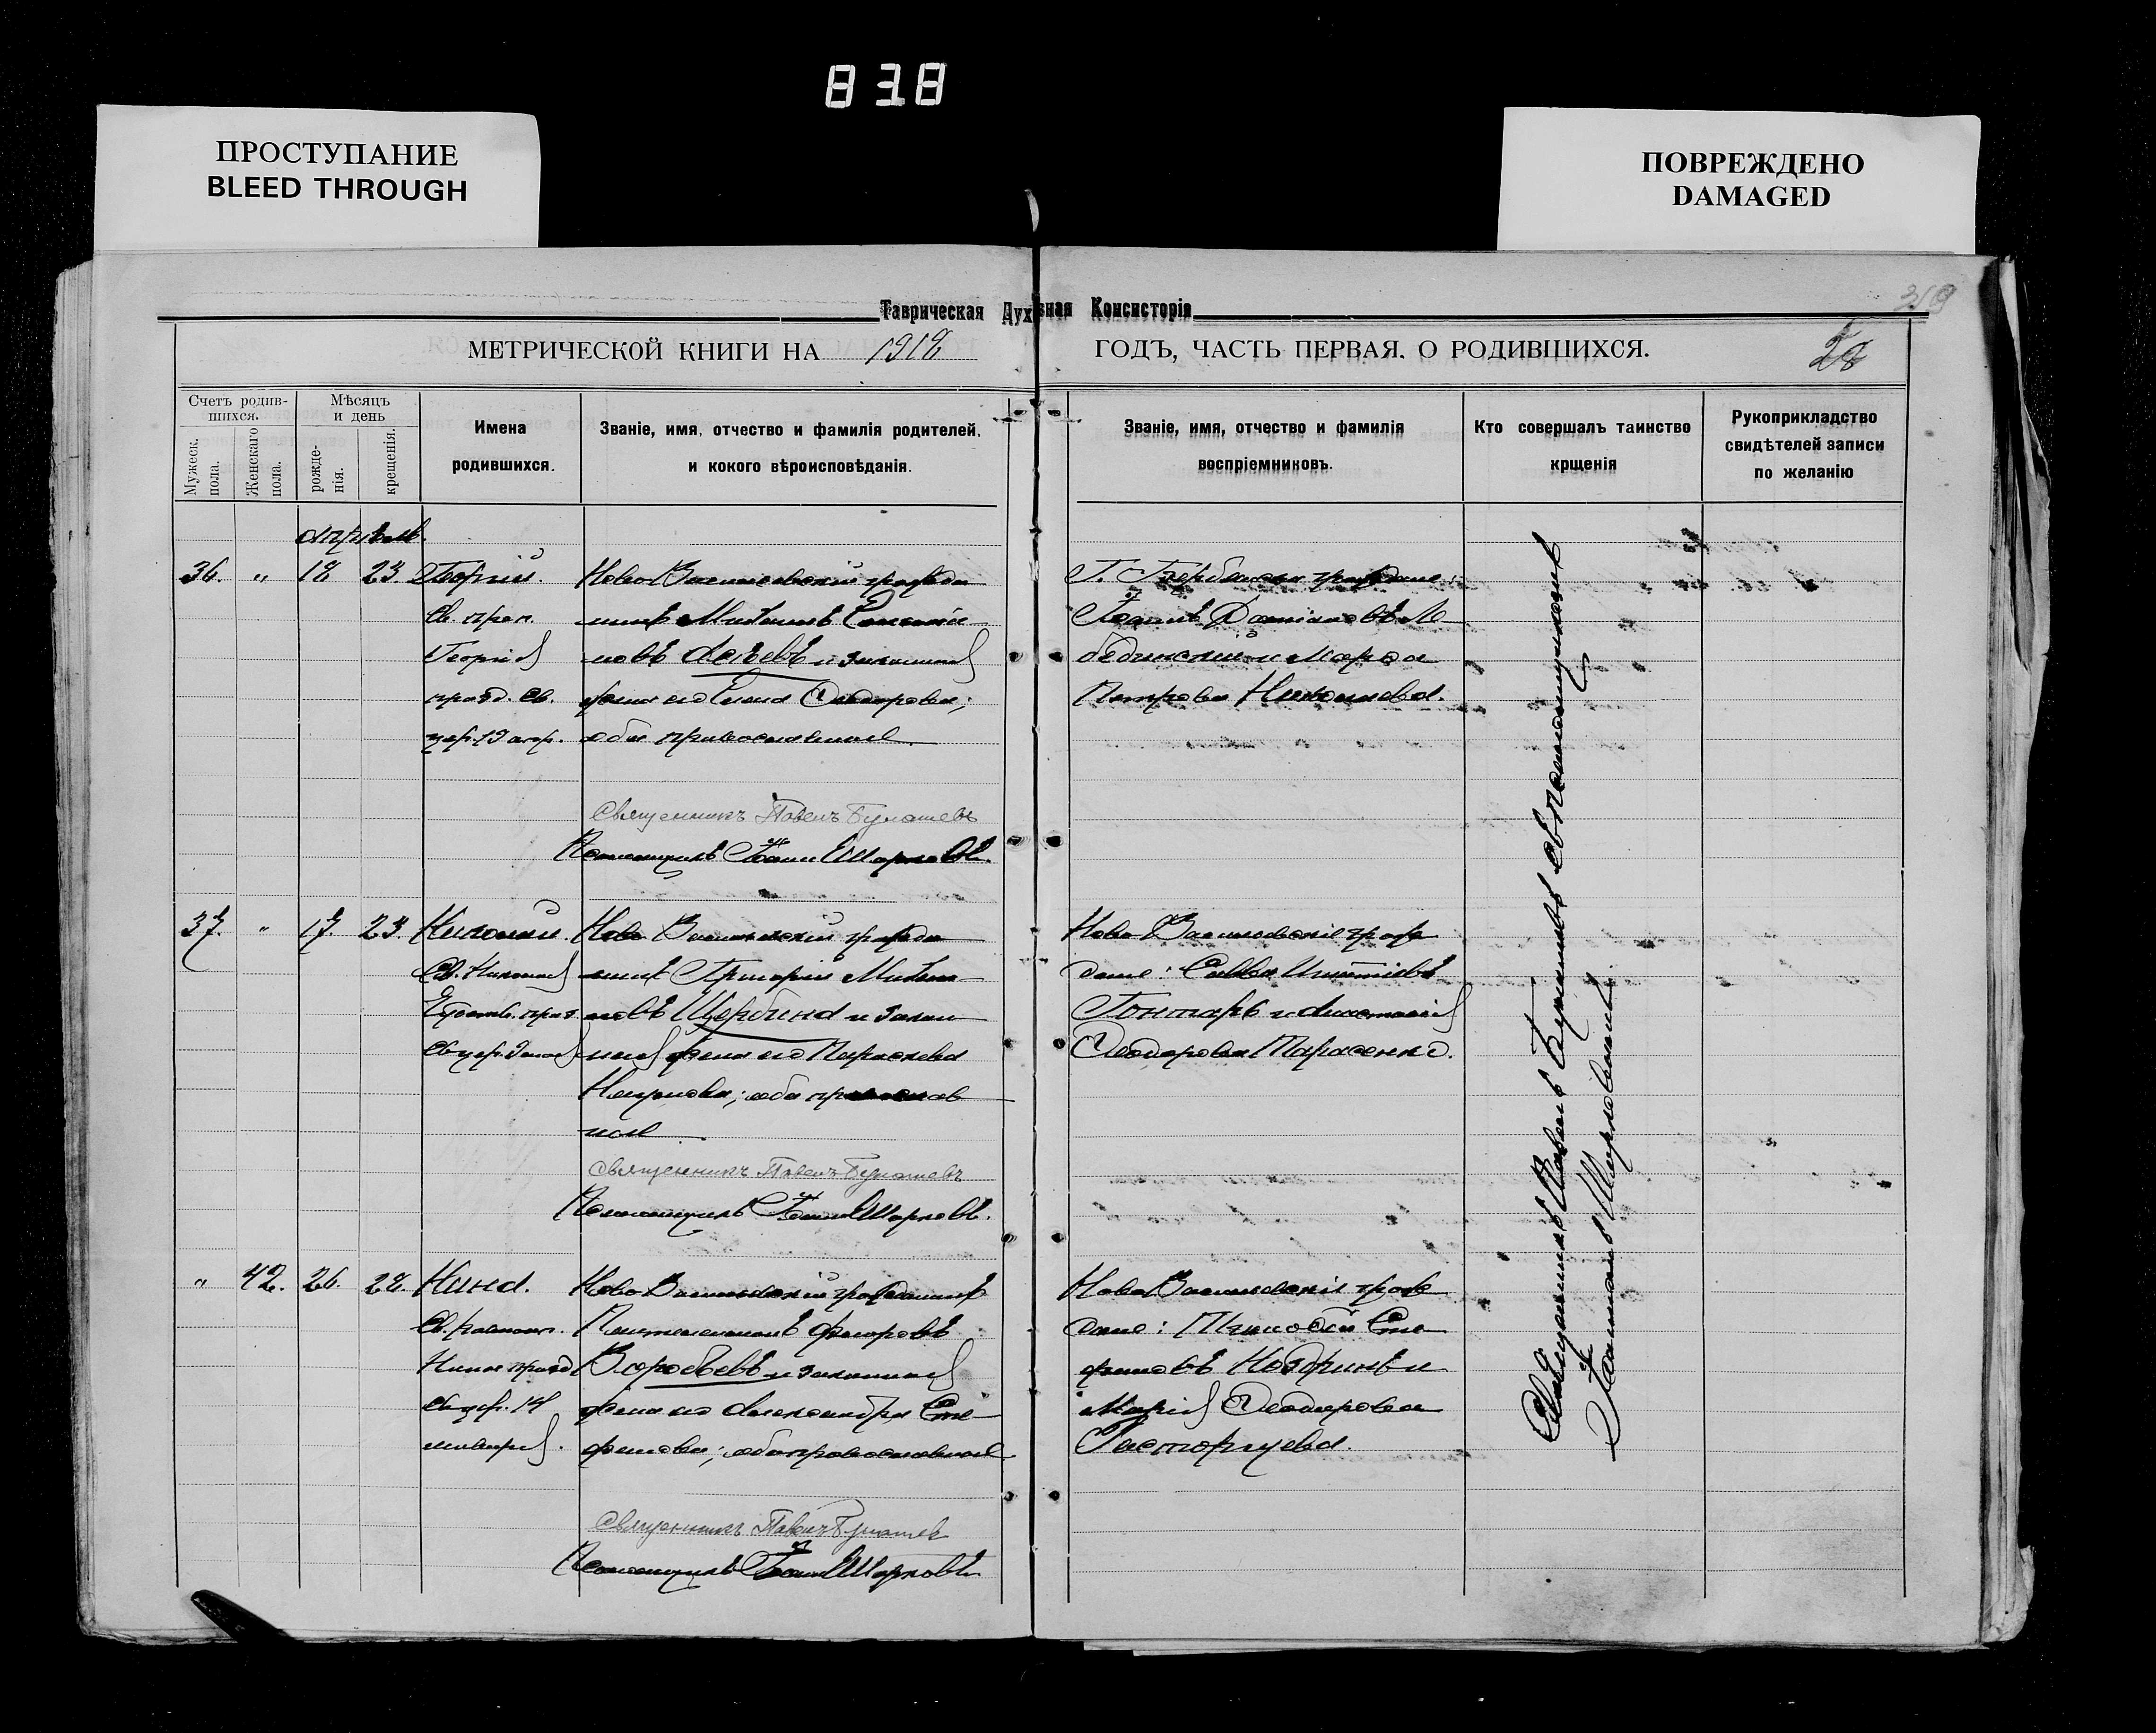 838
ПРОСТУПАНИЕ
BLEED THROUGH
ПОВРЕЖДЕНО
DAMAGED
319
Таврическая Духовная Консисторія
МЕТРИЧЕСКОЙ КНИГИ НА 1918 ГОДЪ, ЧАСТЬ ПЕРВАЯ. О РОДИВШИХСЯ.
28
Счетъ родив-
шихся.
Мужеск.
пола.
Женскаго
пола.
Мѣсяцъ
и день
рожде-
нія.
крещенія.
Имена
родившихся.
Званіе, имя, отчество и фамилія родителей,
и кокого вѣроисповѣданія.
Званіе, имя, отчество и фамилія
воспріемниковъ.
Кто совершалъ таинство
крщенія
Рукоприкладство
свидѣтелей записи
по желанію
апрѣль.
36. " 18 23. Георгій.
Св. преп.
Георгія
празд. св.
цер. 19 апр.
Ново Васильевскій гражда
нинъ Михаилъ
новъ и законная
жена его Елена Ѳеодорова;
оба православные
Священникъ Павелъ Булашевъ
Псаломщикъ Іоаннъ Шарковъ.
Г. граждане:
Іоаннъ Даміановъ Ле
бединскій и Марѳа
Петрова Николаева.
37. " 17. 23. Николай.
Св. Николая
Чудотв. праз.
Св. цер. 9 мая
Ново Васильевскій гражда
нинъ Григорій Михаи
ловъ Щербина и закон
ная жена его Параскева
оба православ
ные
Священникъ Павелъ Булашевъ
Псаломщикъ Іоаннъ Шарковъ.
Ново Васильевскіе граж
дане: Савва Игнатіевъ
Гонтарь и Анастасія
Ѳеодорова Тарасенко.
" 42. 26. 28. Нина.
Нины празд
Св. цер. 14
января.
Ново Васильевскій гражданинъ
Константинъ Флоровъ
Воробьевъ и законная
жена его Александра Сте
фанова; оба православные
Священникъ Павелъ Булашев
Псаломщикъ Іоаннъ Шарковъ.
Ново Васильевскіе граж
дане: Тимоѳей Сте
фановъ Ноздринъ и
Марія Ѳеодорова
Расторгуева.
Священникъ Павелъ Булашевъ съ псаломщикомъ
Іоанномъ Шарковымъ.